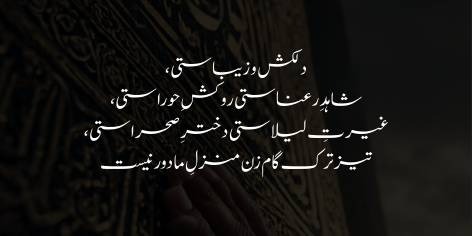 دلکش و زیباستی،
شاہدِ رعناستی روکشِ حوراستی،
غیرتِ لیلاستی دخترِ صحراستی،
تیز ترک گام زن منزلِ ما دور نیست